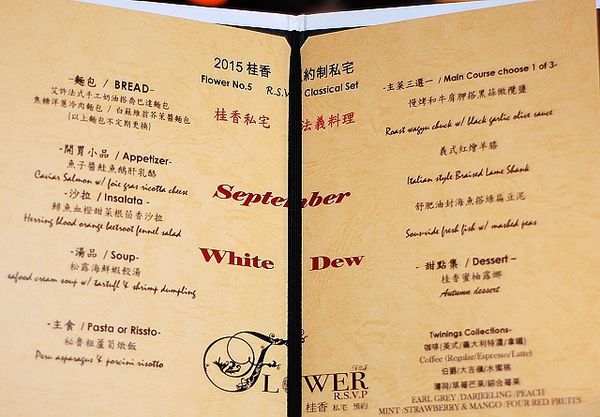 2015 桂香
約制私宅
Flower No.5 R.S.V
Classical Set
桂香私宅
法義料理
September
White Dew
-麵包 / BREAD-
艾許法式手工奶油搭喬巴達麵包
焦糖洋蔥冷肉麵包 / 白蘇維翁芥茉醬麵包
(以上麵包不定期更換)
-開胃小品 / Appetizer-
魚子醬鮭魚鵝肝乳酪
Caviar Salmon w/ foie gras ricotta cheese
-沙拉 / Insalata -
鯡魚血橙甜菜根茴香沙拉
Herring blood orange beetroot fennel salad
-湯品 / Soup-
松露海鮮蝦餃湯
eafood cream soup w/ tartufl & shrimp dumpling
-主食 / Pasta or Rissto-
秘魯粗蘆筍燉飯
Peru asparagus & porcini risotto
-主菜三選一 / Main Course choose 1 of 3-
慢烤和牛肩胛搭黑蒜橄欖鹽
Roast wagyu chuck w/ black garlic olive sauce
義式紅燴羊膝
Italian style Braised Lame Shank
舒肥油封海魚搭綠扁豆泥
Sous-vide fresh fish w/ mashed peas
- 甜點集 / Dessert –
桂香蜜柚露娜
Autumn dessert
Twinings Collections-
咖啡(美式/義大利特濃/拿鐵)
Coffee (Regular/Espresso/Latte)
伯爵/大吉嶺/水蜜桃
薄荷/草莓芒果/綜合莓果
EARL GREY /DARJEELING /PEACH
MINT /STRAWBERRY & MANGO /FOUR RED FRUITS
FLOWER
R.S.V.P
桂香 私宅 預約